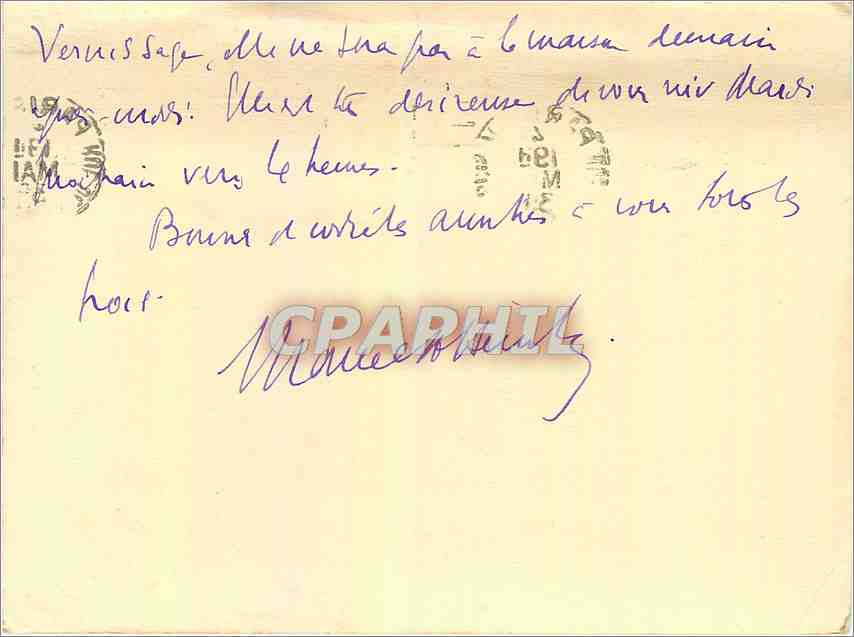 Vernissage, elle ne sera pas à la maison demain
après-midi. Elle est très désireuse de vous voir Mardi
prochain vers 4 heures.
Bonne amitiés à vous tous les
trois.
CPAPHIL